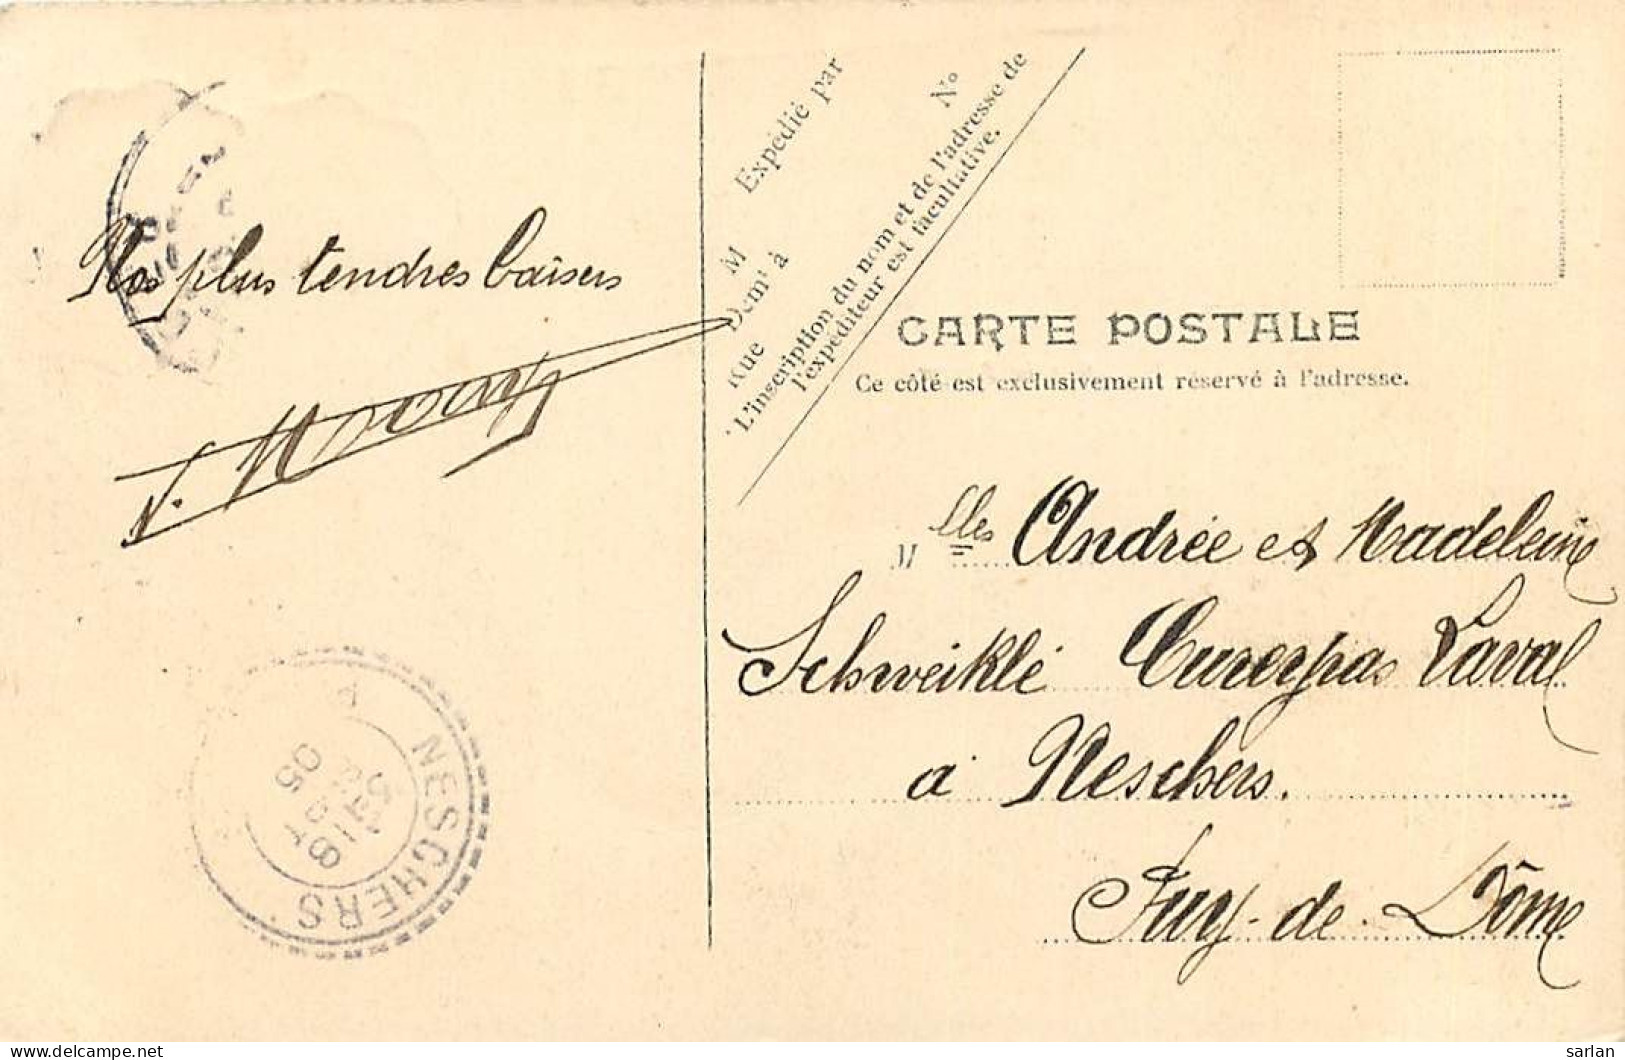 Nos plus tendres baisers
Expédié par
N°
M
Demt à
Rue
L'inscription du nom et de l'adresse de
l'expéditeur est facultative.
CARTE POSTALE
Ce côté est exclusivement réservé à l'adresse.
Mlles Andrée et Madeleine
Schweiklé Laval
à Neschers.
Puy-de-Dôme
NESCHERS
05
delcampe.net
Sarlan